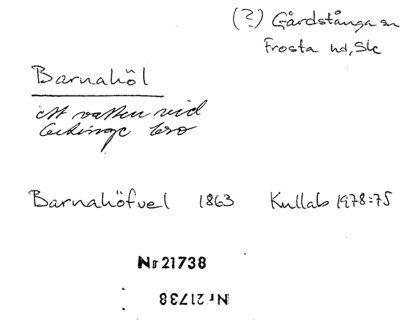 (?) Gårdstånga sn
Frosta hd, Sk
Barnahöl
ett vatten vid
bro
Barnahöfvel 1863 Kullab 1978:75
Nr 21738
Nr 21738